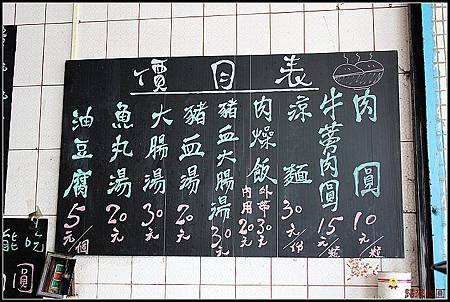 價目表
肉圓 10元/粒
牛蒡肉圓 15元/粒
涼麵 30元/份
肉燥飯 外帶30元 內用20元
豬血大腸湯 30元
豬血湯 20元
大腸湯 30元
魚丸湯 20元
油豆腐 5元/個